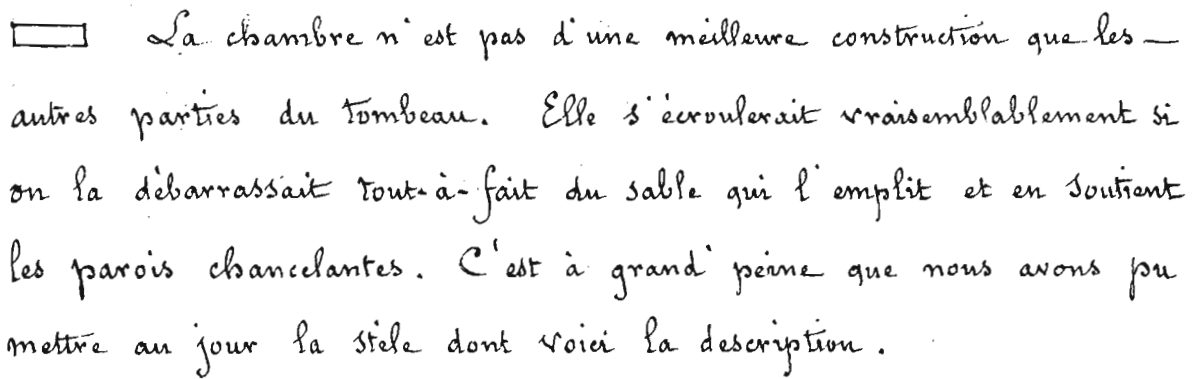 La chambre n'est pas d'une meilleure construction que les
autres parties du tombeau. Elle s'écroulerait vraisemblablement si
on la débarrassait tout-à-fait du sable qui l'emplit et en soutient
les parois chancelantes. C'est à grand'peine que nous avons pu
mettre au jour la stèle dont voici la description.